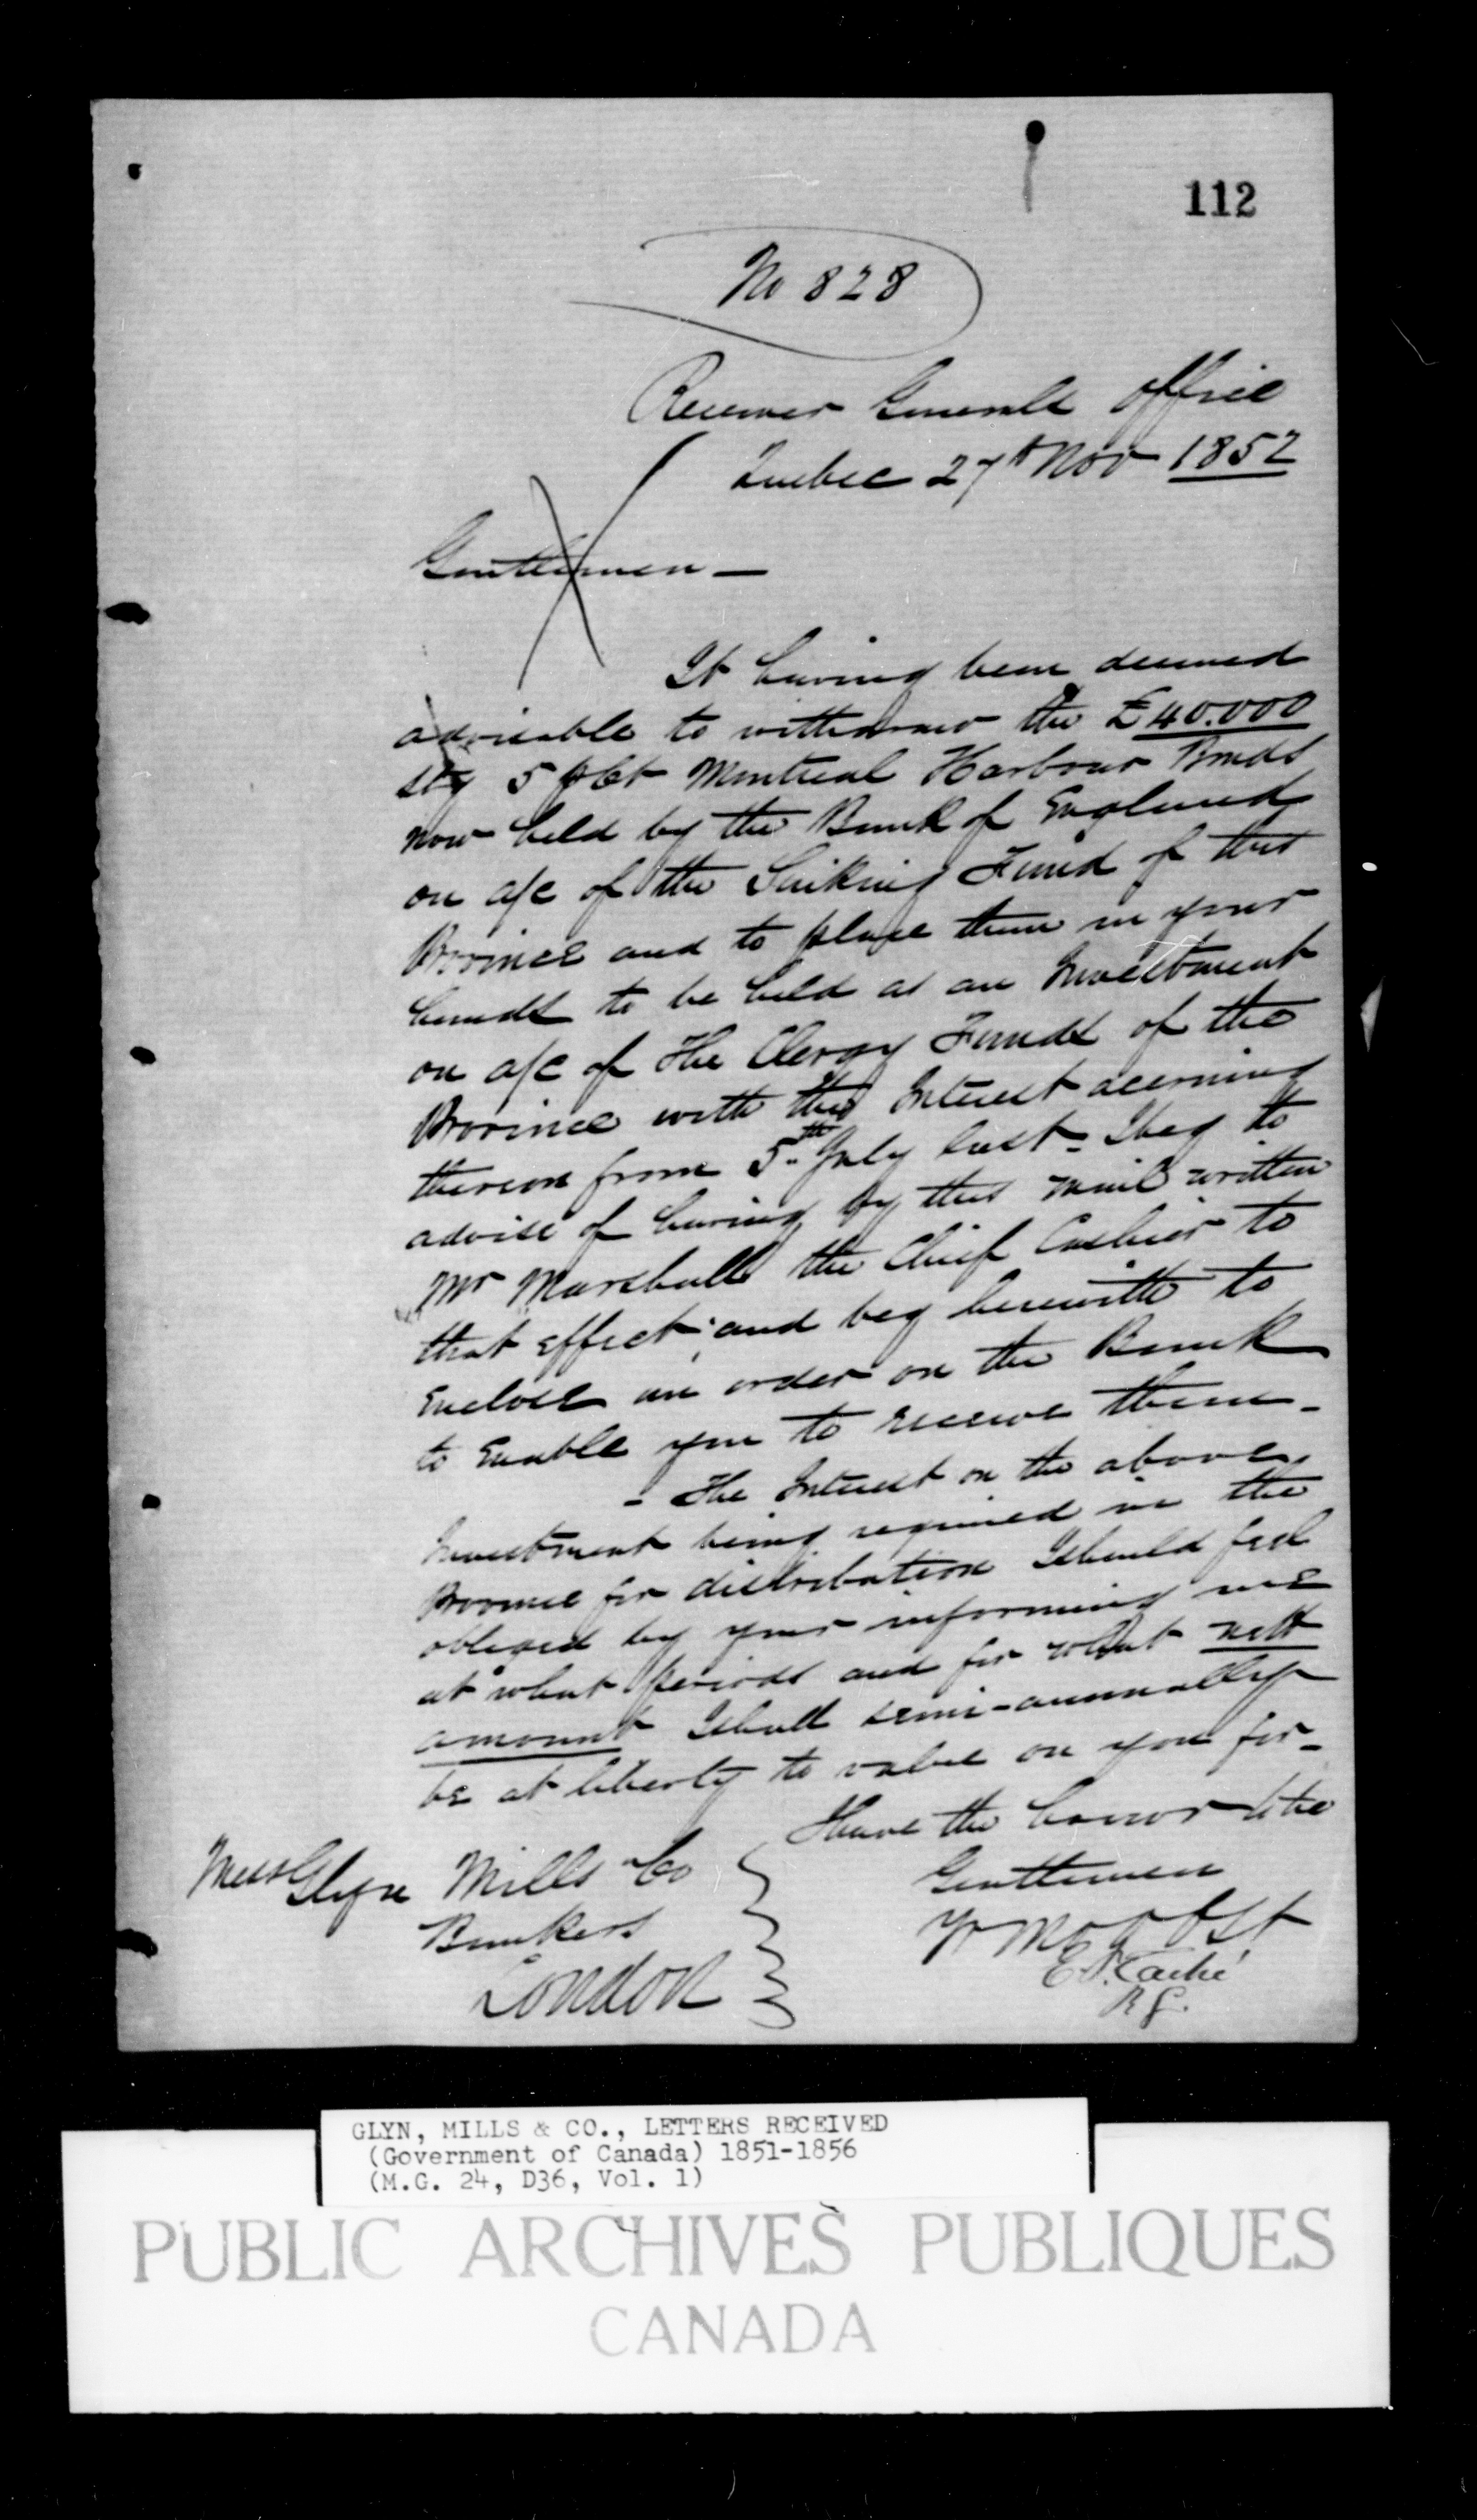 112
No 828
Receiver Generals Office
Quebec 27th Nov 1852
Gentlemen —
It having been deemed
advisable to withdraw the £40.000
stg 5 pCt Montreal Harbour Bonds
now held by the Bank of England
on a/c of the Sinking Fund of this
Province and to place them in your
hands to be held as an Investment
on a/c of the Clergy Funds of the
Province with the Interest accruing
thereon from 5th July last - I beg to
advise of having by this mail written
Mr Marshall the Chief Cashier to
that effect and beg herewith to
Enclose an order on the Bank
to Enable you to receive them -
- The Interest on the above
Investment being required in the
Province for distribution I should feel
obliged by your informing me
at what periods and for what nett
amount I shall semi-annually
be at liberty to value on you for -
I have the honor to be
Gentlemen
Yr Mo O St
E P Taché
R G.
Messrs Glyn Mills & Co
Bankers
London
GLYN, MILLS & CO., LETTERS RECEIVED
(Government of Canada) 1851-1856
(M.G. 24, D36, Vol. 1)
PUBLIC ARCHIVES PUBLIQUES
CANADA